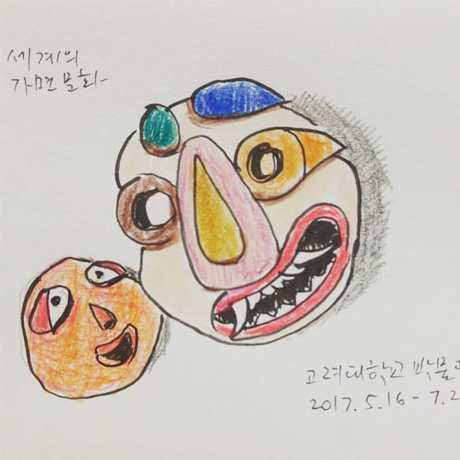 세계의
가면문화
고려대학교 박물
2017. 5. 16 - 7. 2